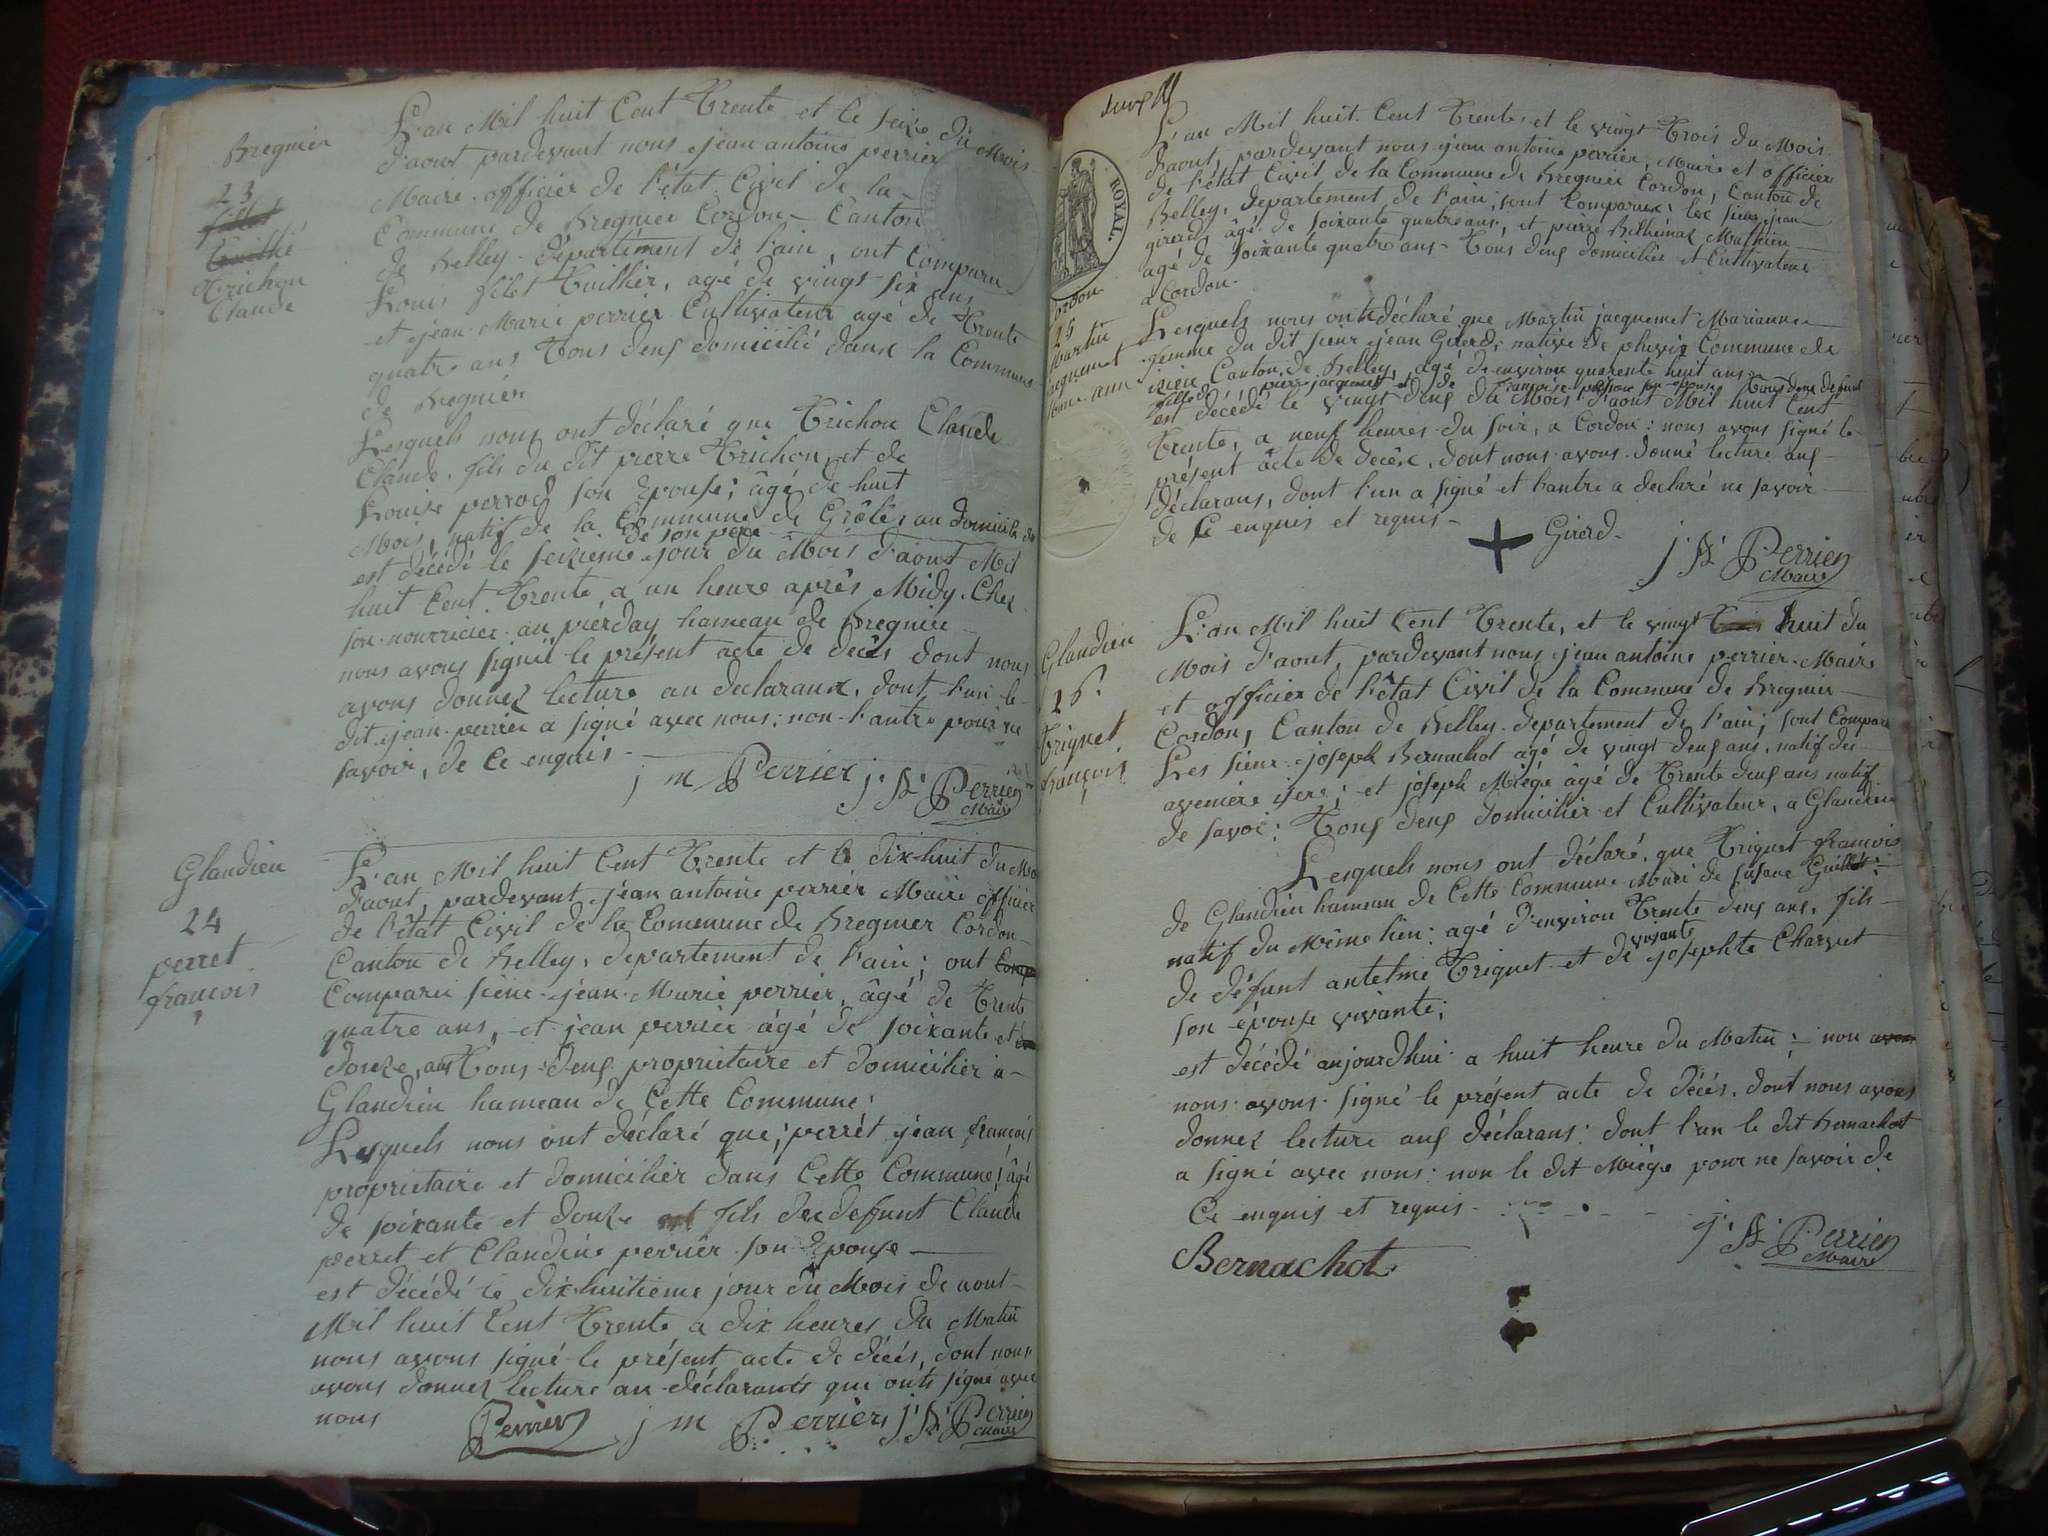 Bregnier
23
fillet
Tuillié
Trichon
Claude
L'an Mil huit Cent Trente et le seize du Mois
d'aout pardevant nous jean antoine perrier
Maire officier de l'état Civil de la
Commune de Bregnier Cordon - Canton
de Belley - département de l'ain, ont Comparu
Louis filet Tuillier, agé de vingt six ans
et jean Marie perrier Cultivateur agé de Trente
quatre ans Tous deux domicilié dans la Commune
de Bregnier
Lesquels nous ont déclaré que Trichon Claude
Claude, fils du dit pierre Trichon, et de
Louise perrod son Epouse; âgé de huit
Mois, natif de la Commune de Grôlé, au domicile de
de son père
est décédé le seizieme jour du Mois d'aout Mil
huit Cent Trente a un heure après Midy, Chez
son nourricier au pierday hameau de Bregnier
nous avons signé le présent acte de decès dont nous
avons donnez lecture au declarans, dont l'un le
dit jean perrier a signé avec nous; non l'autre pour ne
savoir, de Ce enquis -
j m Perrier j. A. Perrier
Maire
Glandieu
24
perret
françois
L'an Mil huit Cent Trente et le dix huit du Mois
d'aout, pardevant jean antoine perrier Maire officier
de l'état Civil de la Commune de Bregnier Cordon -
Canton de Belley, departement de l'ain; ont Comp
Comparu sieur jean Marie perrier, âgé de Trente
quatre ans, et jean perrier âgé de soixante et
douze, ans Tous deux propriétaire et domicilier a -
Glandieu hameau de Cette Commune;
Lesquels nous ont déclaré que; perrét jean françois
propriétaire et domicilier dans Cette Commune, âgé
de soixante et douze est fils de defunt Claude
perret et Claudine perrier son Epouse -
est décédé le dix huitieme jour du Mois de aout
Mil huit Cent Trente a dix heures du Matin
nous avons signé le présent acte de décés, dont nous
avons donnez lecture au déclarants qui onts signé avec
nous
Perrier j m Perrier j. A. Perrier
Maire
ROYAL.
L'an Mil huit Cent Trente, et le vingt Trois du Mois
d'aout, pardevant nous jean antoine perrier, Maire et officier
de l'état Civil de la Commune de Bregnier Cordon, Canton de
Belley, departement de l'ain; sont Comparus; les sieur jean
girerd âgé de soixante quatre ans, et pierre Mathieu
agé de soixante quatre ans - Tous deux domiciliés et Cultivateur
a Cordon.
Cordon
25
Martin
jacquemet
Marie ann
Lesquels nous ont déclaré que Martin jacquemet Marianne
femme du dit sieur jean Girerd, native de Canton de Belley, agé de environ quarente huit ans
fille de pierre jacquemet et de françoise son epouse Tous deux defunt
est décédé le vingt deux du Mois d'aout Mil huit Cent
Trente, a neuf heures du soir, a Cordon: nous avons signé le
présent âcte de decès, dont nous avons donné lecture aux
déclarans, dont l'un a signé et l'autre a declaré ne savoir
de Ce enquis et requis -
Girerd
j. A. Perrier
Maire
Glandieu
26.
Triguet
françois
L'an Mil huit Cent Trente, et le vingt huit du
Mois d'aout, pardevant nous jean antoine perrier Maire
et officier de l'état Civil de la Commune de Bregnier
Cordon, Canton de Belley departement de l'ain; sont Comparu
Les sieur joseph Bernachot agé de vingt deux ans, natif des
aveniere isere; et joseph Miége âgé de Trente deux ans natif
de savoi: Tous deux domicilier et Cultivateur, a Glandieu
Lesquels nous ont déclaré, que Triguet françois
de Glandieu hameau de Cette Commune Mari de susane Guillot:
natif du Même lieu: agé d'environ Trente deux ans, fils
de défunt antelme Triguet et de vivante josephte Charvet
son épouse vivante;
est décédé aujourdhui a huit heure du Matin; non avon
nous avons signé le présent acte de décés, dont nous avons
donnez lecture aux déclarans: dont l'un le dit Bernachot
a signé avec nous: non le dit Miége pour ne savoir de
Ce enquis et requis -
Bernachot
j. A. Perrier
Maire